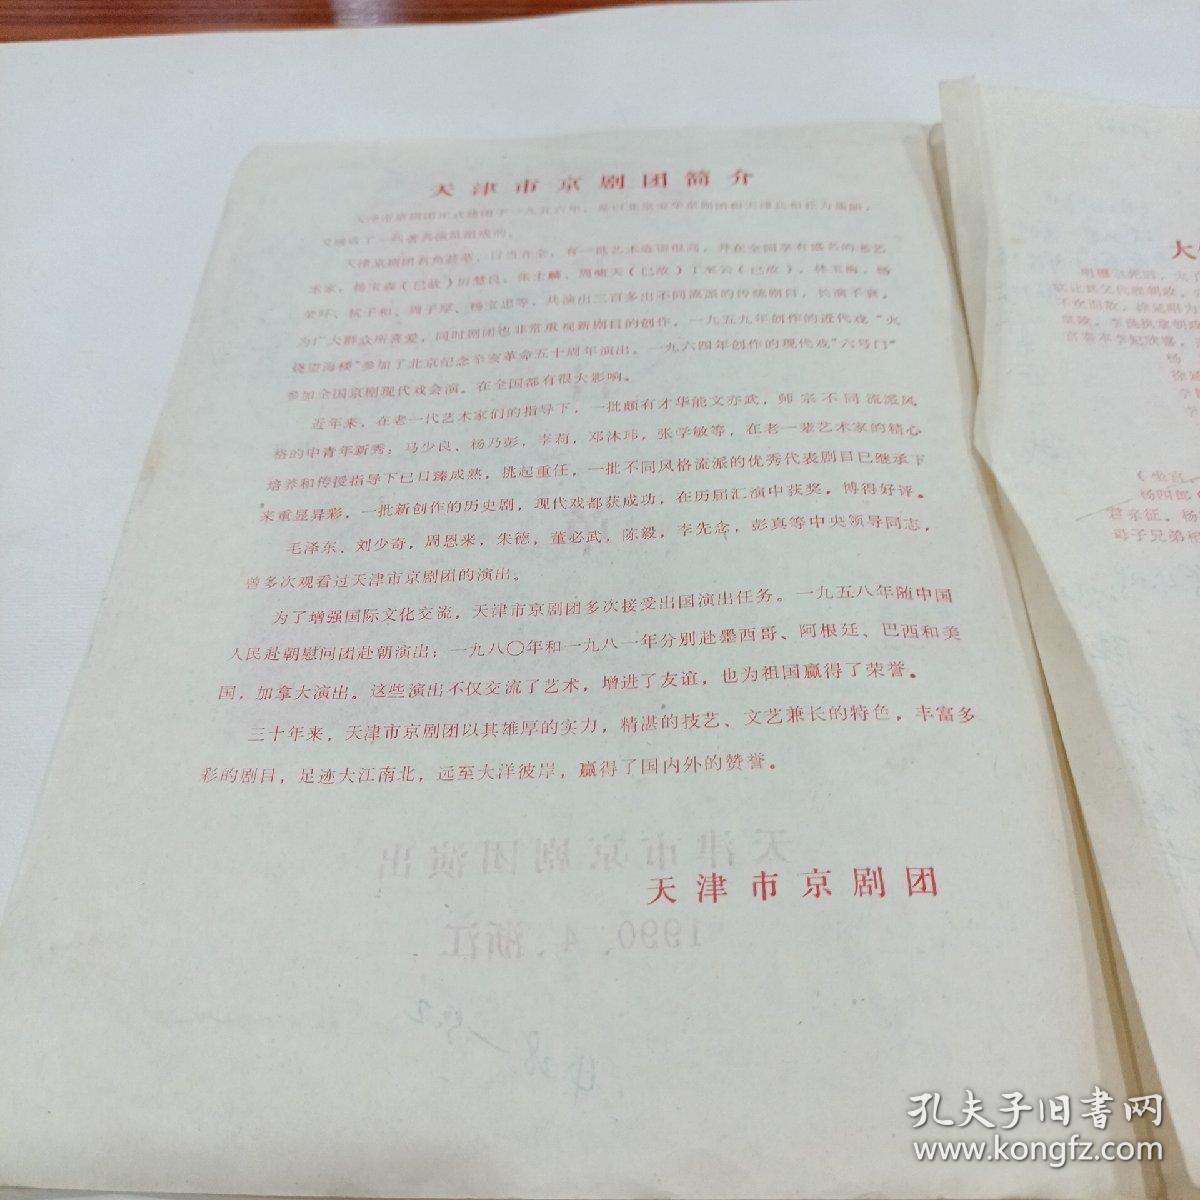 天津市京剧团简介
天津市京剧团正式建团于一九五六年，是以北京宝华京剧团和天津共和社为基础，
又吸收了一些著名演员组成的。
天津京剧团名角荟萃，行当齐全，有一批艺术造诣很高，并在全国享有盛名的老艺
术家：杨宝森（已故）厉慧良、张士麟、周啸天（已故）丁至云（已故），林玉梅，杨
荣环、杭子和、周子厚、杨宝忠等，共演出三百多出不同流派的传统剧目，长演不衰，
为广大群众所喜爱，同时剧团也非常重视新剧目的创作，一九五九年创作的近代戏“火
烧望海楼”参加了北京纪念辛亥革命五十周年演出。一九六四年创作的现代戏“六号门”
参加全国京剧现代戏会演。在全国都有很大影响。
近年来，在老一代艺术家们的指导下，一批颇有才华能文亦武，师宗不同流派风
格的中青年新秀：马少良、杨乃彭，李莉，邓沐玮，张学敏等，在老一辈艺术家的精心
培养和传授指导下已日臻成熟，挑起重任，一批不同风格流派的优秀代表剧目已继承下
来重显异彩，一批新创作的历史剧，现代戏都获成功，在历届汇演中获奖，博得好评。
毛泽东、刘少奇，周恩来，朱德，董必武，陈毅，李先念，彭真等中央领导同志，
曾多次观看过天津市京剧团的演出。
为了增强国际文化交流，天津市京剧团多次接受出国演出任务。一九五八年随中国
人民赴朝慰问团赴朝演出；一九八〇年和一九八一年分别赴墨西哥、阿根廷、巴西和美
国，加拿大演出。这些演出不仅交流了艺术，增进了友谊，也为祖国赢得了荣誉。
三十年来，天津市京剧团以其雄厚的实力，精湛的技艺、文艺兼长的特色，丰富多
彩的剧目，足迹大江南北，远至大洋彼岸，赢得了国内外的赞誉。
天津市京剧团演出
天津市京剧团
1990．4．浙江
孔夫子旧书网
www.kongfz.com